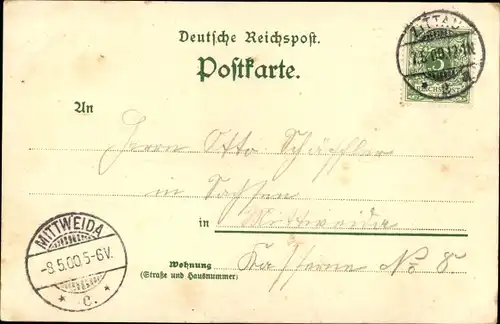 Deutsche Reichspost.
Postkarte.
ZITTAU
7.5.00.12-1N.
* a
5
An
Herrn Otto Schäffler
in Sachsen
in Mittweida
Wohnung
(Straße und Hausnummer)
Kaserne No 8.
MITTWEIDA
-8.5.00.5-6V.
* c. *